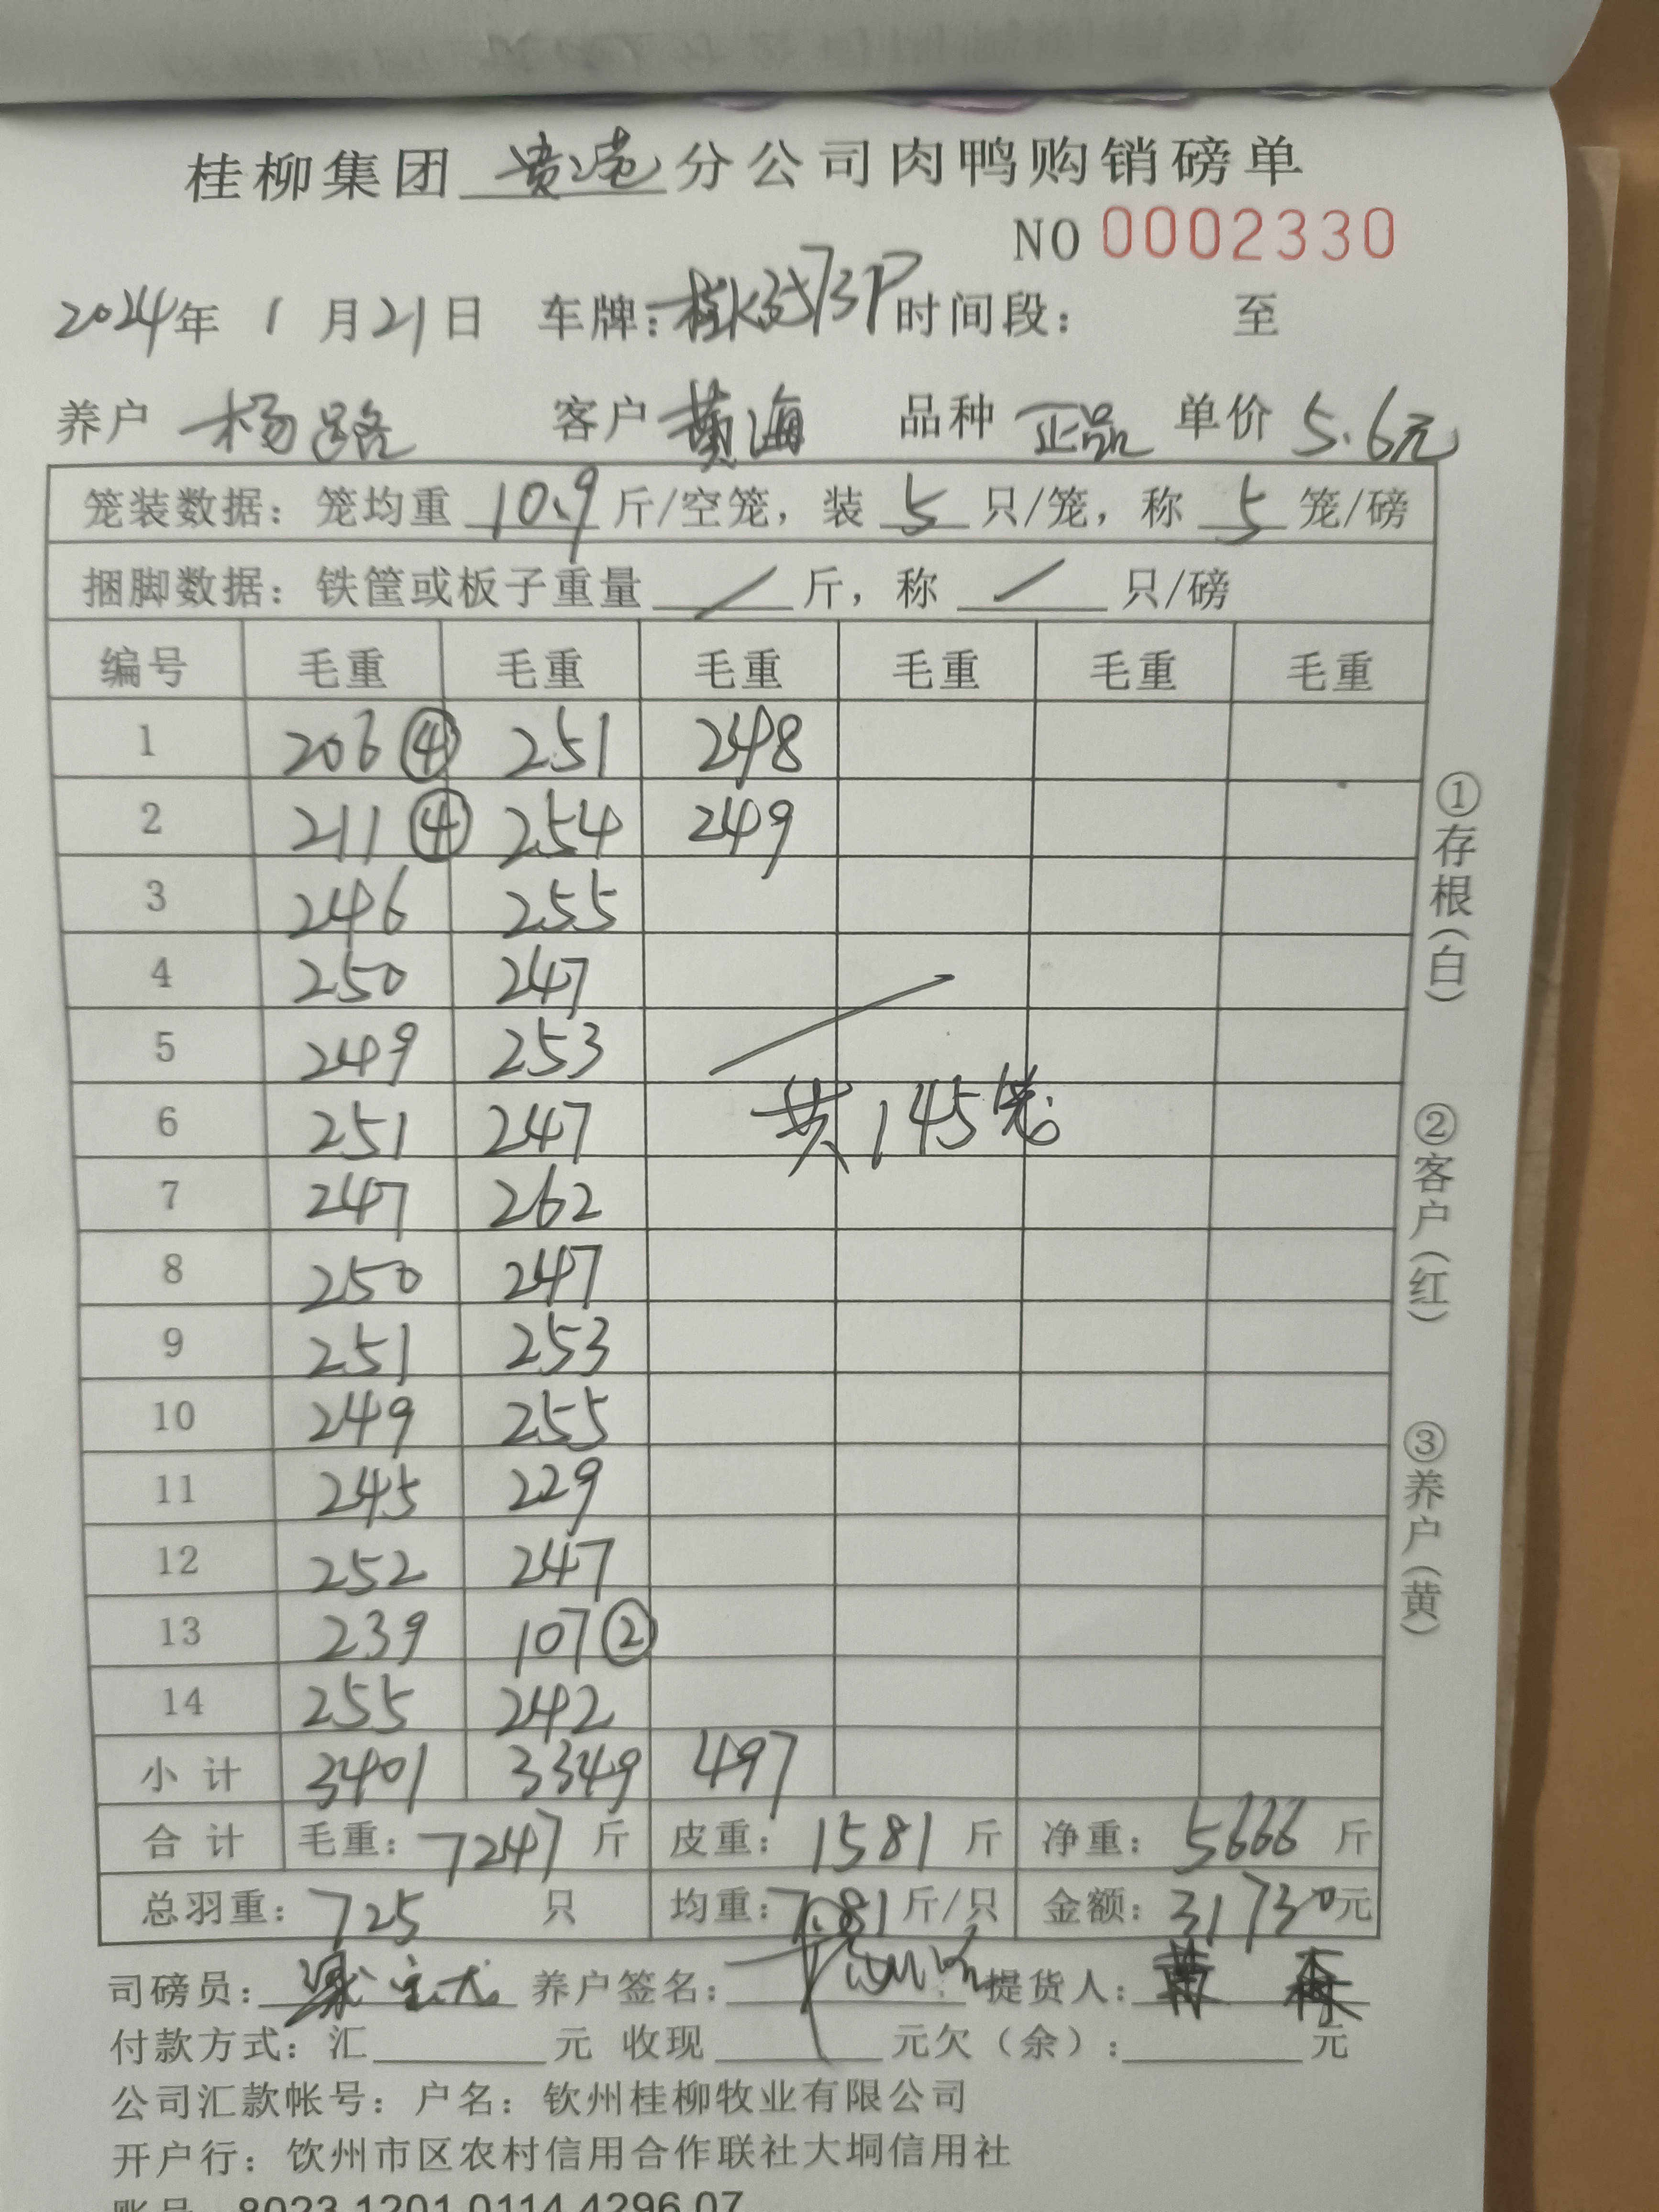 桂柳集团 贵港 分公司肉鸭购销磅单
NO 0002330
2024年 1 月21日 车牌: 时间段: 至
养户 杨路 客户 黄海 品种 正品 单价 5.6元
笼装数据: 笼均重 10.9 斤/空笼, 装 5 只/笼, 称 5 笼/磅
捆脚数据: 铁筐或板子重量 / 斤, 称 / 只/磅
编号 毛重 毛重 毛重 毛重 毛重 毛重
1 206 ④ 251 248
2 211 ④ 254 249
3 246 255
4 250 247
5 249 253
6 251 247 共145笼
7 247 262
8 250 247
9 251 253
10 249 255
11 245 229
12 252 247
13 239 107 ②
14 255 242
小计 3401 3349 497
合计 毛重: 7247 斤 皮重: 1581 斤 净重: 5666 斤
总羽重: 725 只 均重: 7.81 斤/只 金额: 31730元
司磅员: 养户签名: 提货人:
付款方式: 汇 元 收现 元欠(余): 元
公司汇款帐号: 户名: 钦州桂柳牧业有限公司
开户行: 饮州市区农村信用合作联社大垌信用社
账号 8023 1201 0114 4296 07
①存根(白)
②客户(红)
③养户(黄)